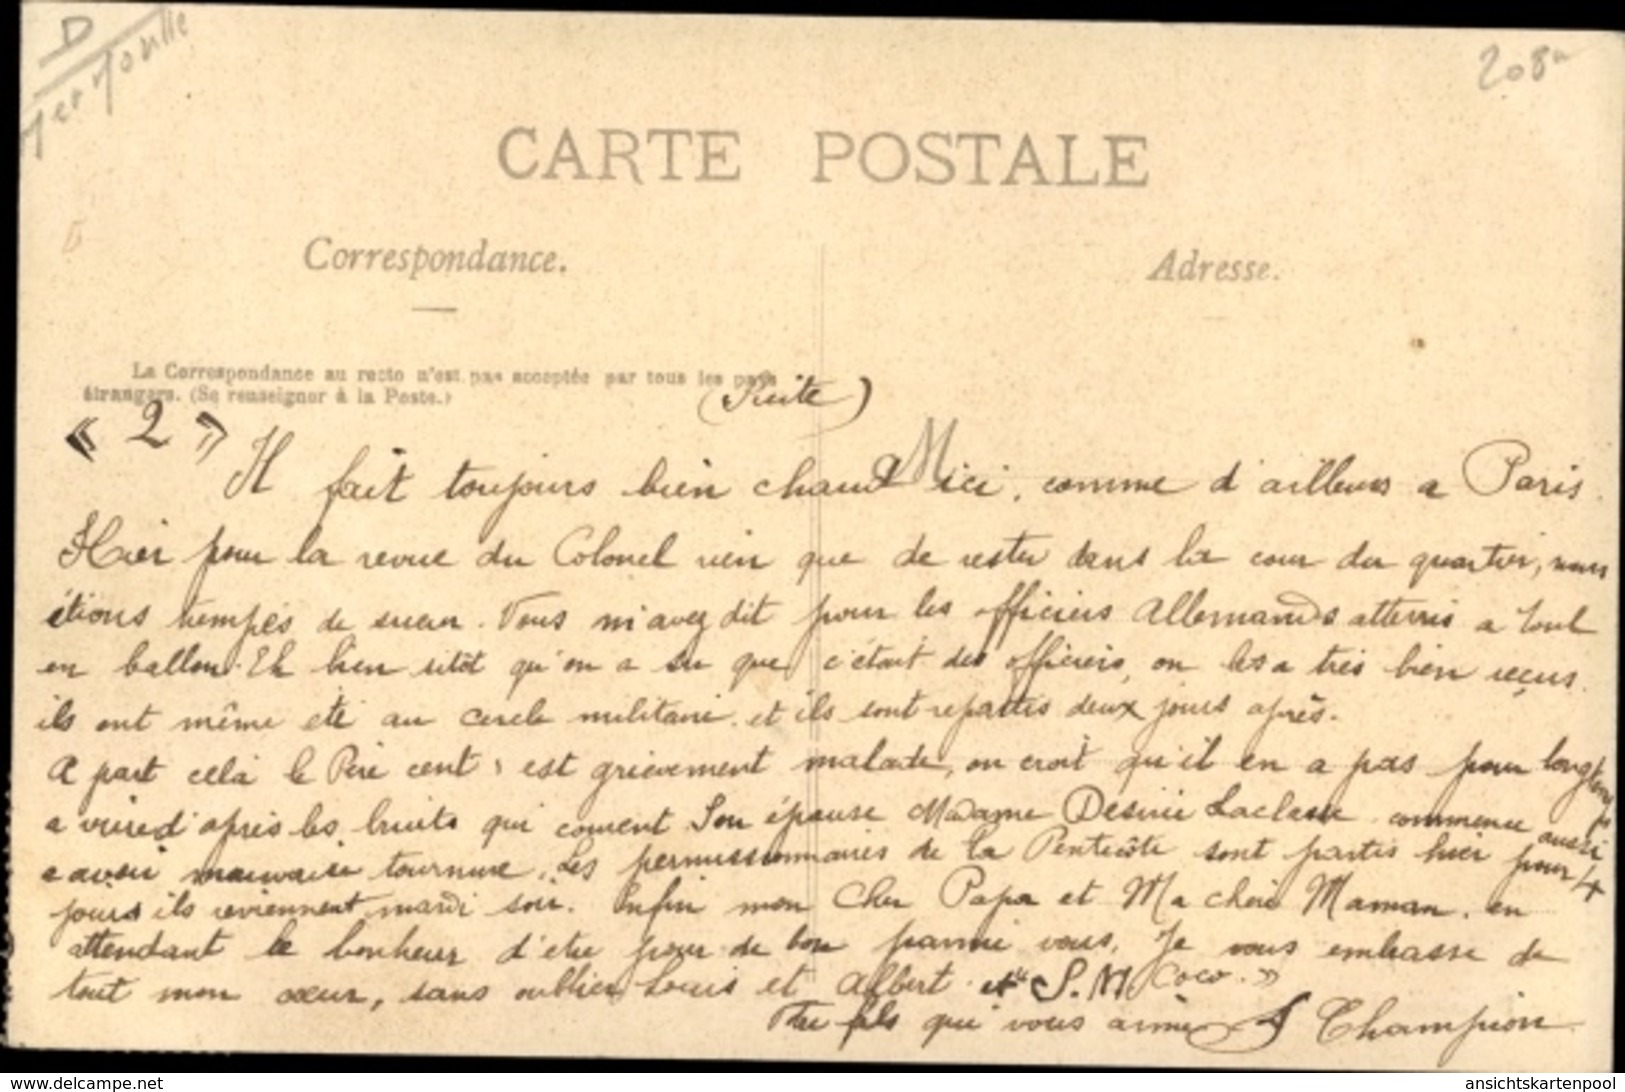 D
208
CARTE POSTALE
Correspondance.
Adresse.
La Correspondance au recto n'est pas acceptée par tous les pays
étrangers. (Se renseigner à la Poste.)
(Suite)
« 2 »
Il fait toujours bien chaud ici, comme d'ailleurs a Paris.
Hier pour la revue du Colonel rien que de rester dans la cour du quartier, nous
étions trempés de sueur. Vous m'avez dit pour les officiers Allemands atterris a Toul
en ballon. Eh bien sitôt qu'on a su que c'était des officiers, on les a très bien reçus.
ils ont même été au cercle militaire et ils sont repartis deux jours après.
A part cela le Père cent, est grièvement malade, on croit qu'il en a pas pour longtemps
a vivre d'après les bruits qui courent Son épouse Madame Désirée Laclasse commence aussi
a avoir mauvaise tournure. Les permissionnaires de la Pentecôte sont partis hier pour 4
jours ils reviennent mardi soir. Enfin mon Cher Papa et Ma chère Maman, en
attendant le bonheur d'être pour de bon parmi vous, Je vous embrasse de
tout mon cœur, sans oublier Louis et Albert et "S.M Coco."
Ttre fils qui vous aime Champion
ansichtskartenpool.de
ansichtskartenpool